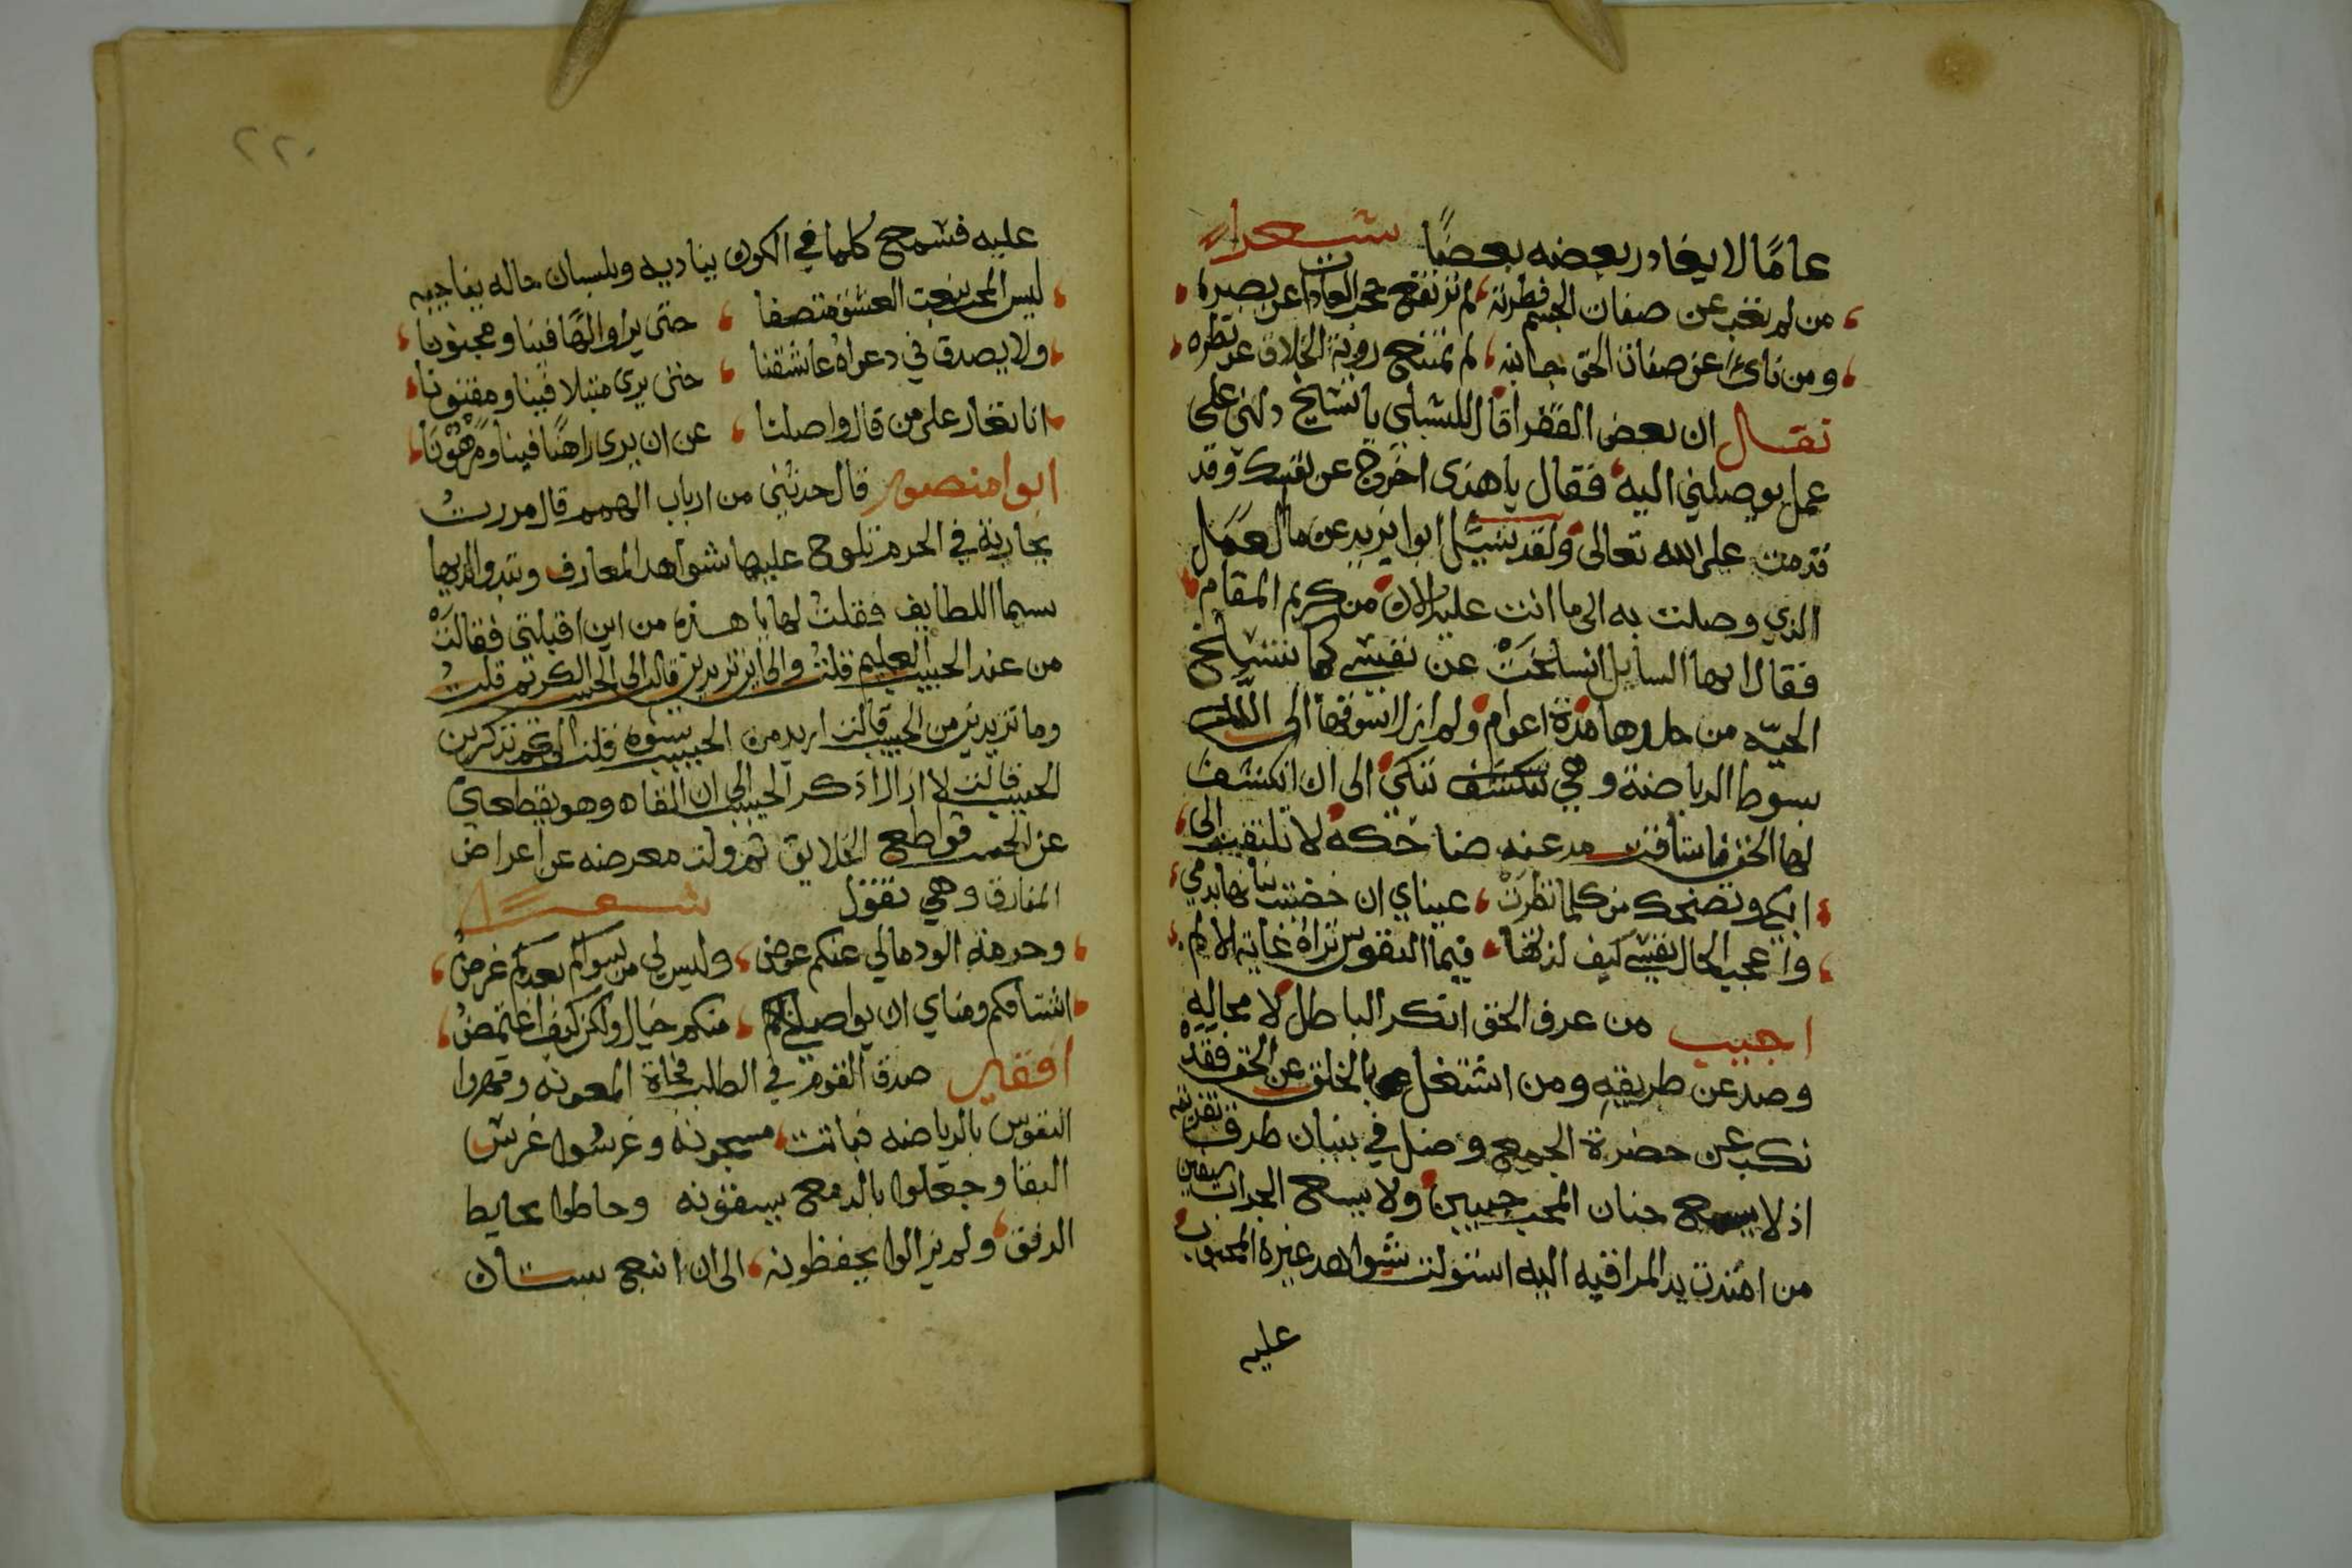 عامًا لا يغادر بعضه بعضًا شعرا
من لم تغب عن صفات الجسم فطرته لم ترتفع حجب العادات عن بصره
ومن نأى عن صفات الحق جانبه لم تمتنع روية الخلاق عن نظره
نقــال ان بعض الفقرا قال للشبلي يا شيخ دلني على
عمل يوصلني اليه فقال يا هذى اخرج عن نفسك وقد
قدمت على الله تعالى ولقد سيل ابوا يزيد عن ما العمل
الذي وصلت به الى ما انت عليه الان من كريم المقام
فقال ايها السايل انسلخت عن نفسي كما تنسلخ
الحيّه من جلدها مدة اعوام ولم ازل اسوقها الى الله
بسوط الرياضة وهي تبكي الى ان انكشف
لها الحق فاستاقت ضاحكة لا تلتفت الى
ابكي وتضحك من كلما نظرت عيناي ان خضبت بنانها بدمي
وا عجب الحال نفسي كيف لذتها فيما النفوس تراه غاية الالم
اجيب من عرف الحق انكر الباطل لا محاله
وصد عن طريقه ومن اشتغل بالخلق عن الحق فقد
نكب عن حضرة الجمع وضل في طرق
اذ لا يسع جنان المحب حبيبين ولا يسع
من امتدت يد المراقبه اليه استولت شواهد غيرة المحبوب
عليه
٢٢٠
عليه فسمع كلما في الكون يناديه وبلسان حاله يناجيه
ليس المحب بنعت العشق متصفا حتى يرا والهًا فينا ومجنونا
ولا يصدق في دعواه عاشقنا حتى يرى مبتلا فينا ومفتونا
انا نغار على من قال واصلنا عن ان يرى راهنًا فينا ومرهونا
ابوا منصور قال حدثني من ارباب الهمم قال مررت
بجارية في الحرم تلوح عليها شواهد المعارف وتبدو لديها
سيما اللطايف فقلت لها يا هذه من اين اقبلتي فقالت
من عند الحبيب العليم قلت والى اين تريدين قالت الى الحبيب الكريم قلت
وما تريدين من الحبيب قالت اريد من الحبيب قلت الى كم تذكرين
الحبيب قالت لا ازال اذكر الحبيب الى ان القاه وهو يقطعني
عن الحب قواطع الخلايق ثم ولت معرضه عن اعراض
المفارق وهي تقول شعــرًا
وحرمة الود مالي عنكم عوض وليس لي من سواكم بعدكم غرض
اشتاقكم ومناي ان يواصلني منكم خيال ولكن كيف اغتمض
افقير صدق القوم في الطلب فجاة المعونه وقهروا
النفوس بالرياضه فباتت مسجونه وغرسوا غرس
التقا وجعلوا بالدمع يسقونه وحاطوا بحايط
الرفق ولم يزالوا يحفظونه الى ان اينع بستان